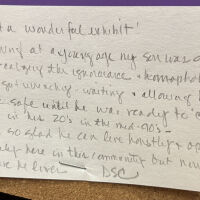 t a wonderful exhibit!
at a young age my son was
the ignorance + homophob
waiting + allowing
safe until he was ready to "
in his 20's in the mid-90's -
so glad he can live honestly + op
here in this community but now
he lives — DSC